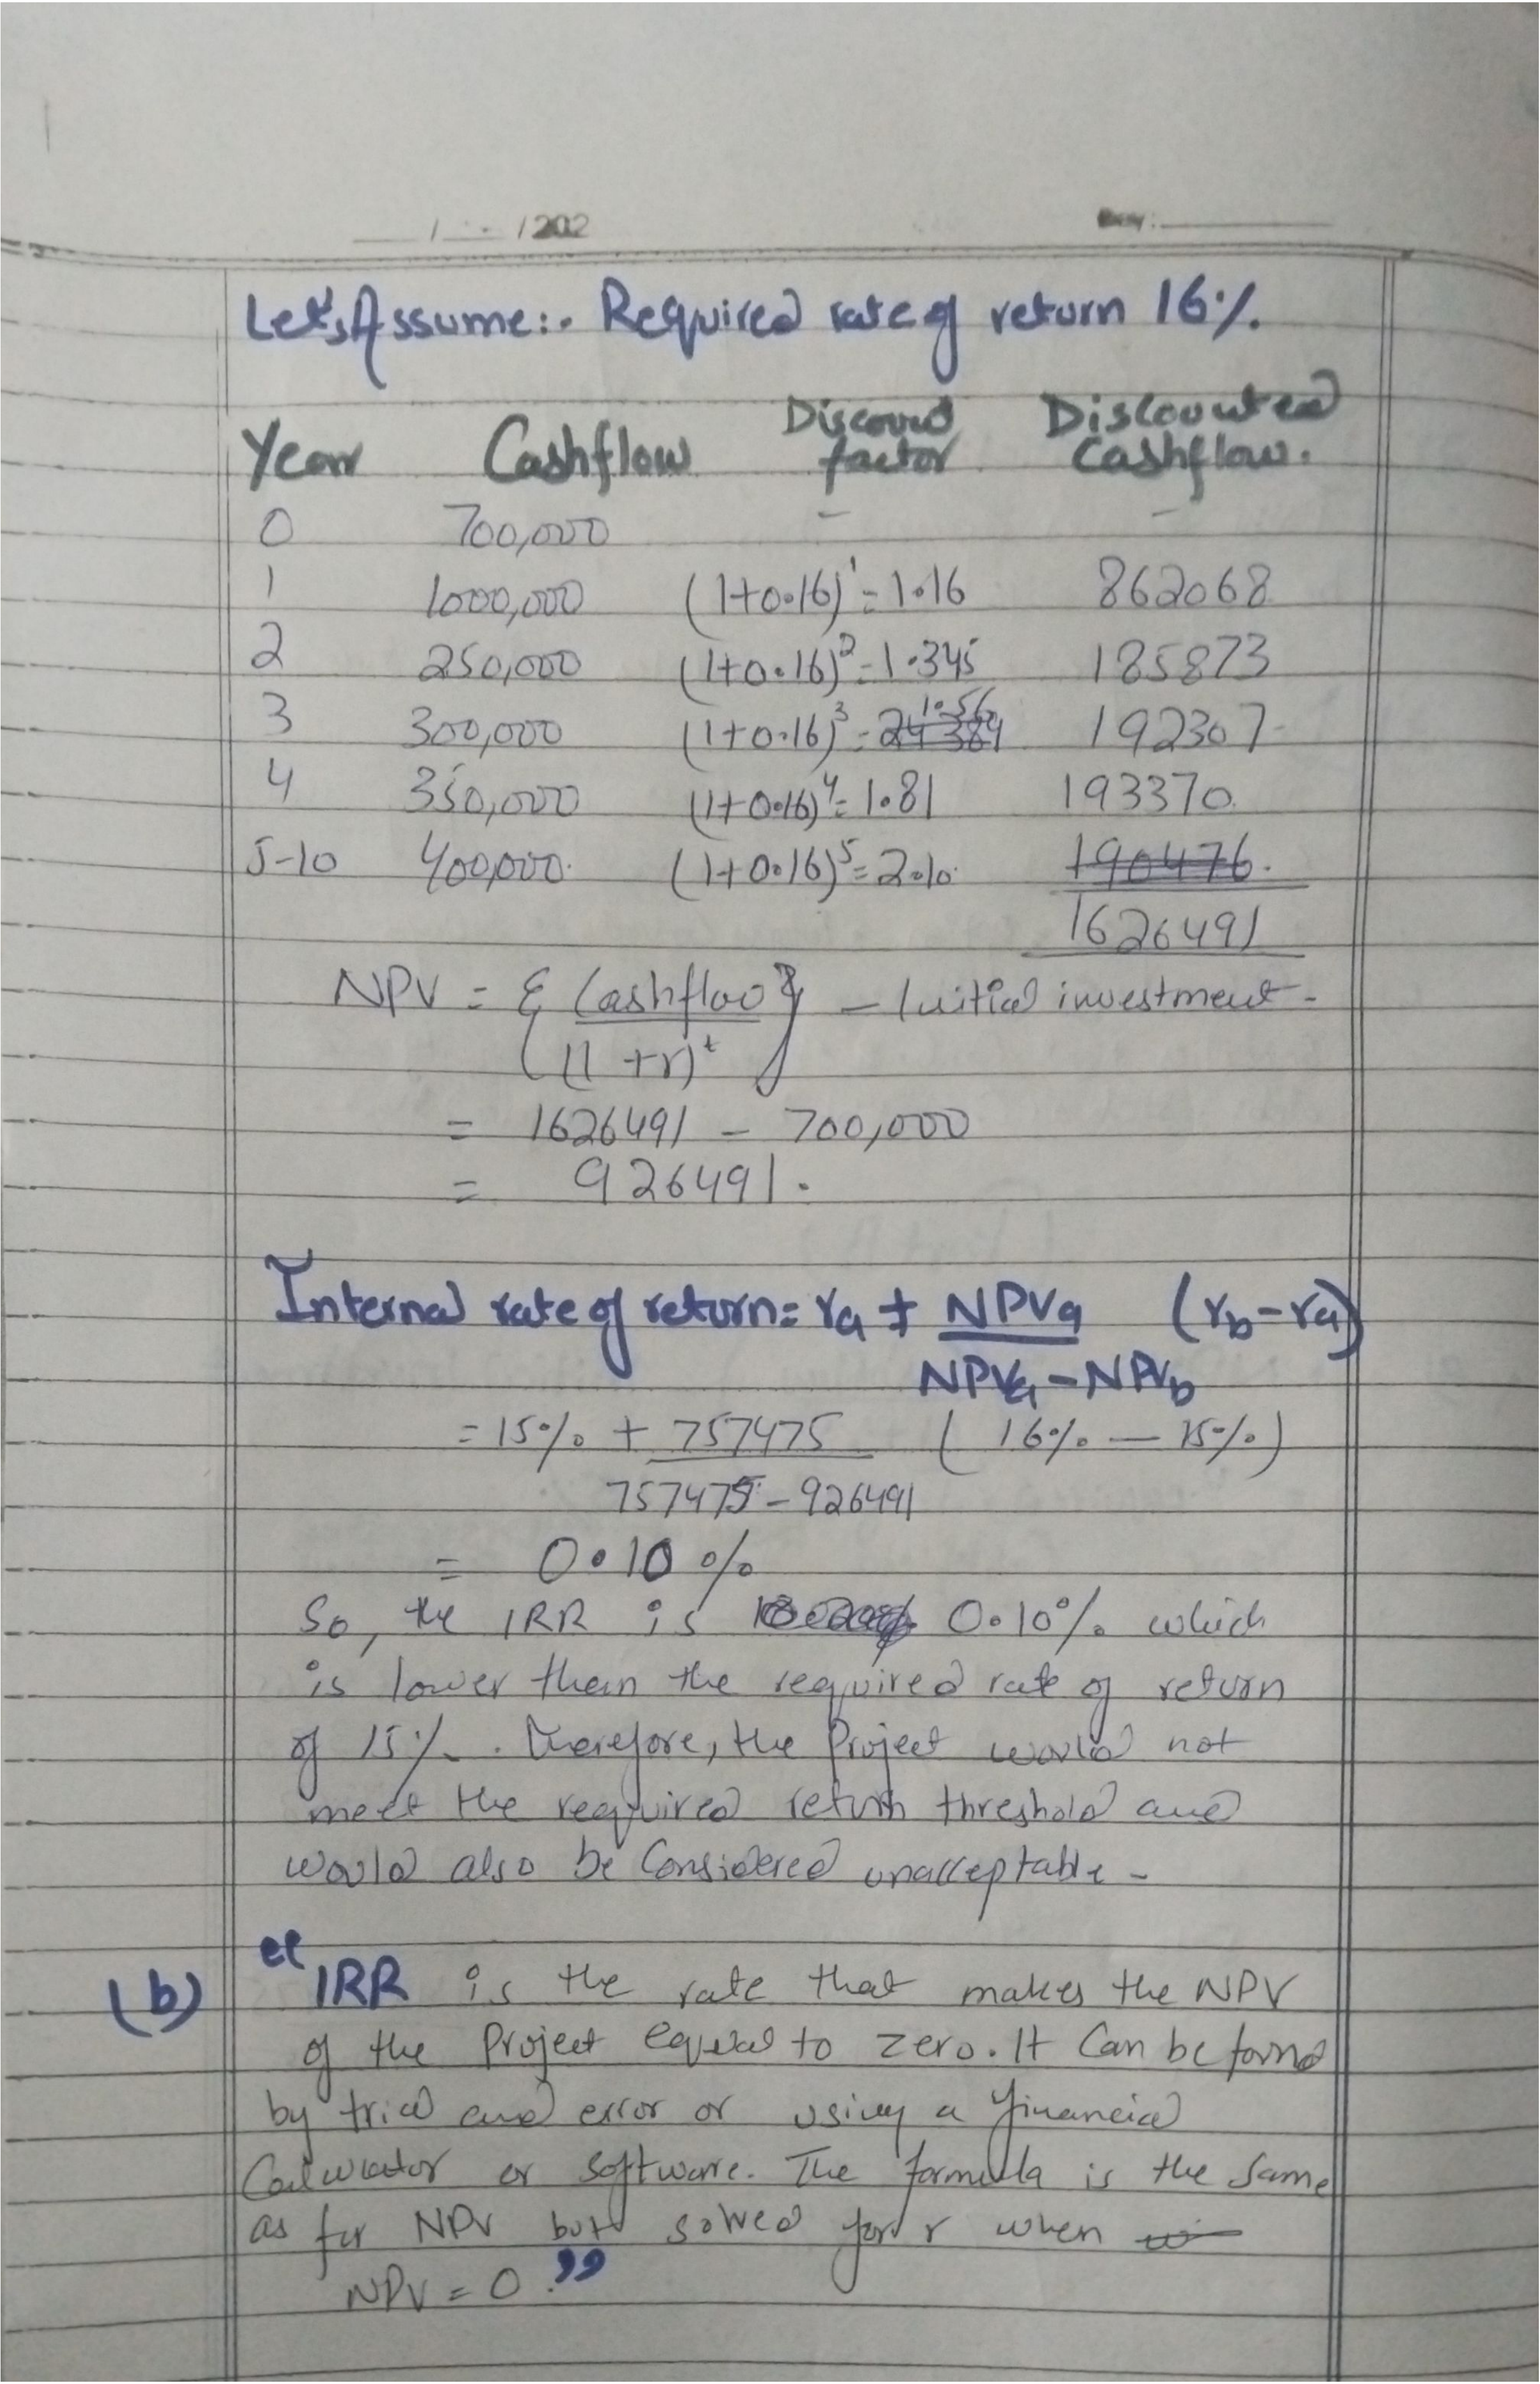 / /202 Day:
Let's Assume:- Required rate of return 16%.
Year Cashflow Discound factor Discounted Cashflow.
0 700,000 - -
1 1000,000 (1+0.16)¹=1.16 862068
2 250,000 (1+0.16)²=1.345 185873
3 300,000 (1+0.16)³= 1.56 192307
4 350,000 (1+0.16)⁴=1.81 193370
5-10 400,000. (1+0.16)⁵=2.10 190476.
1626491
NPV = { Cashflow } - Initial investment -
(1+r)ᵗ
= 1626491 - 700,000
= 926491.
Internal rate of return = ra + NPVa (rb-ra)
NPVa - NPVb
= 15% + 757475 ( 16% - 15% )
757475 - 926491
= 0.10 %
So, the IRR is 0.10% which
is lower then the required rate of return
of 15%. Therefore, the Project would not
meet the required return threshold and
would also be Considered unacceptable -
(b) "IRR is the rate that makes the NPV
of the Project equal to zero. It Can be found
by trial and error or using a financial
Calculator or software. The formula is the same
as for NPV but solved for r when
NPV = 0."